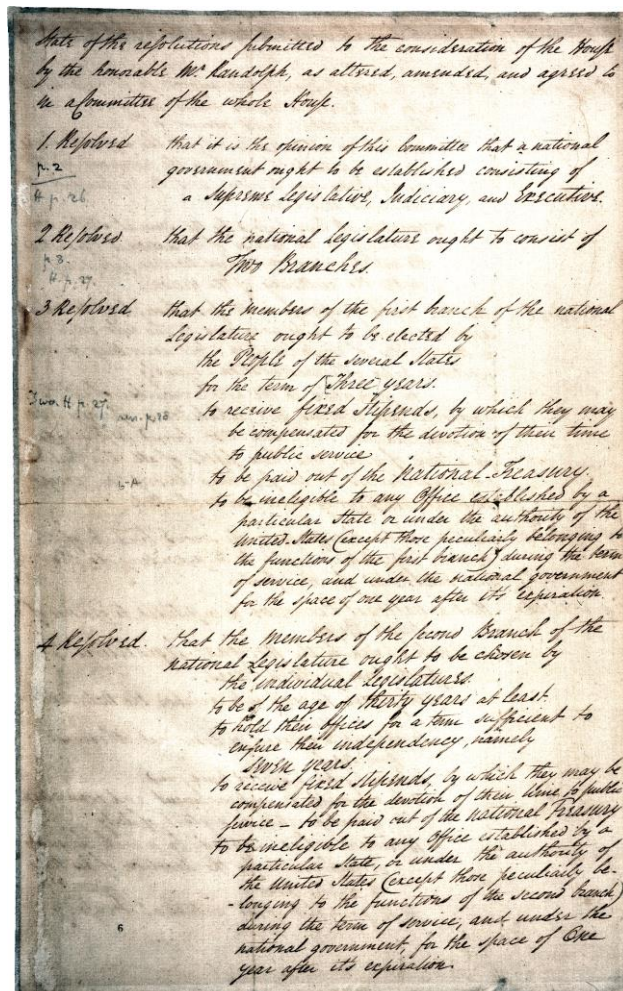 State of the resolutions submitted to the consideration of the House
by the honorable Mr Randolph, as altered, amended, and agreed to
in a Committee of the whole House.
1. Resolved that it is the opinion of this Committee that a national
p. 2
government ought to be established consisting of
H p. 26
a Supreme Legislative, Judiciary, and Executive.
2 Resolved that the national Legislature ought to consist of
p. 8.
Two Branches.
H. p. 27.
3 Resolved that the Members of the first branch of the national
Legislature ought to be elected by
the People of the several States
for the term of Three years.
Two. H p. 27.
to receive fixed Stipends, by which they may
be compensated for the devotion of their time
to public service
to be paid out of the National-Treasury.
to be ineligible to any Office established by a
particular State or under the authority of the
United-States (except those peculiarly belonging to
the functions of the first branch) during the term
of service, and under the national government
for the space of one year after it's expiration.
4 Resolved. that the Members of the second Branch of the
national Legislature ought to be chosen by
the individual Legislatures.
to be of the age of thirty years at least.
to hold their offices for a term sufficient to
ensure their independency, namely
seven years.
to receive fixed Stipends, by which they may be
compensated for the devotion of their time to public
service - to be paid out of the National Treasury
to be ineligible to any Office established by a
particular State, or under the authority of
the United States (except those peculiarly be-
-longing to the functions of the second branch)
during the term of service, and under the
national government, for the space of One
year after it's expiration.
6